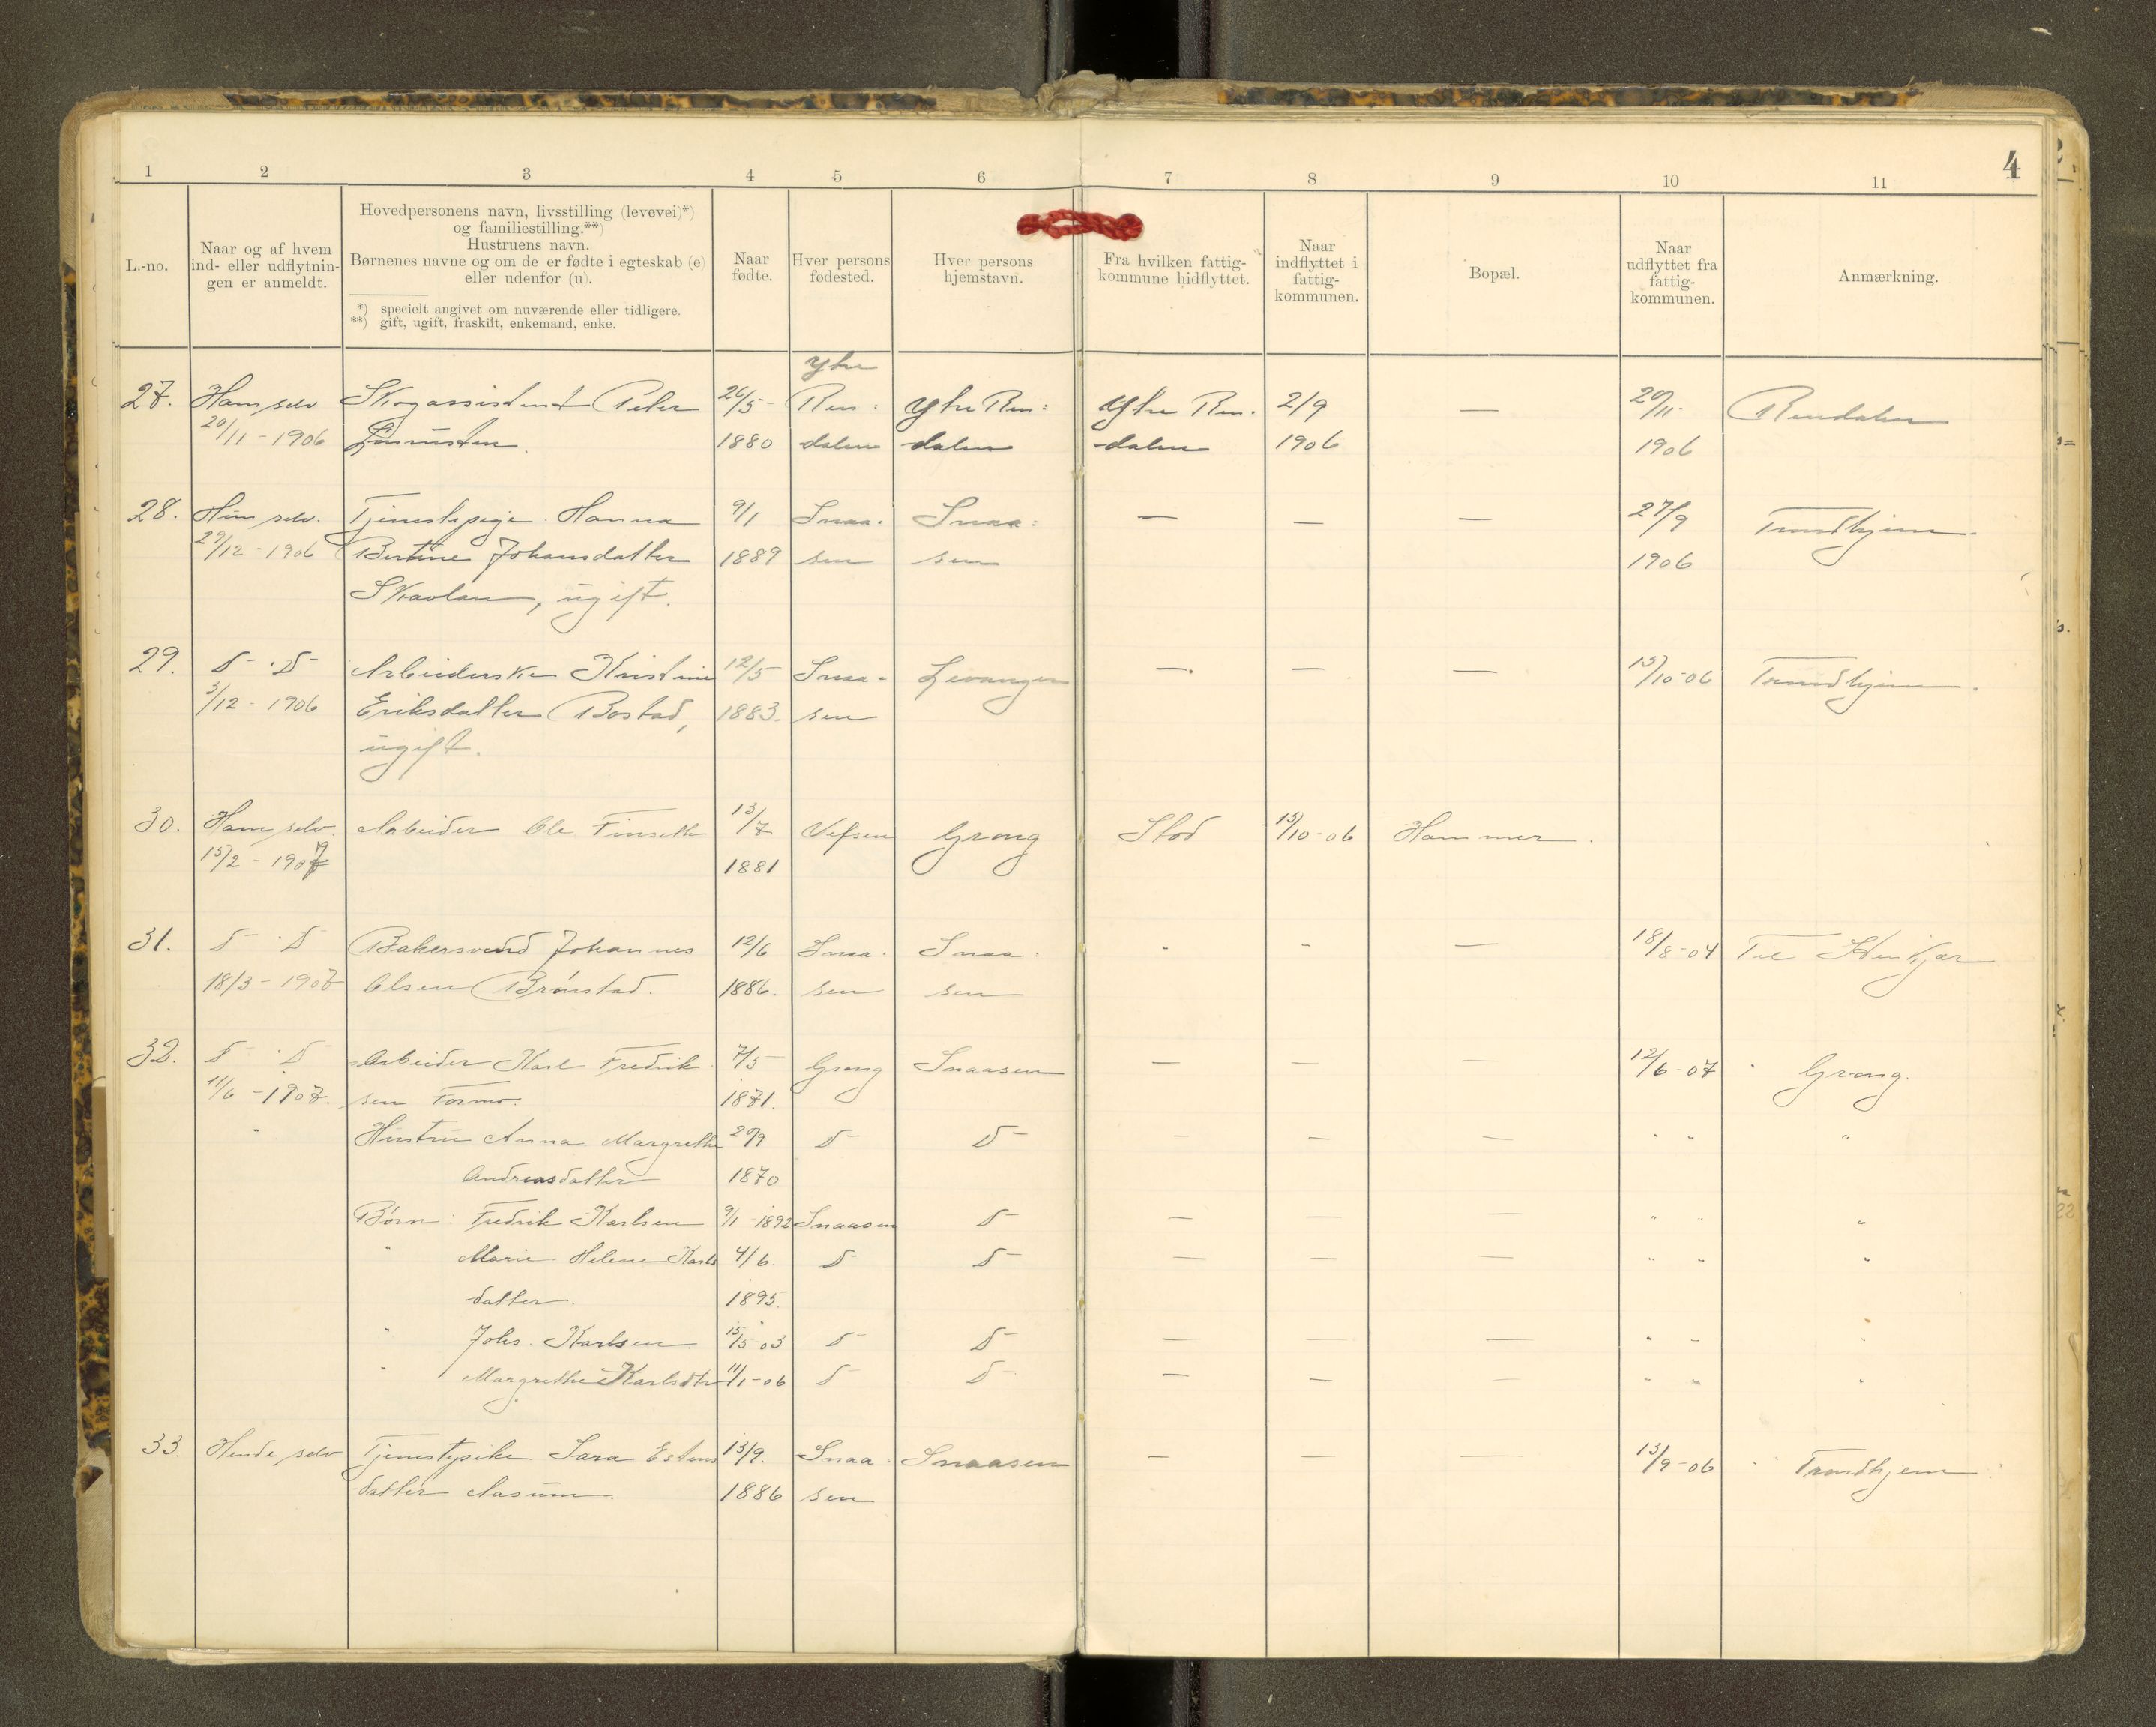 4
1 2 3 4 5 6 7 8 9 10 11
L.-no.
Naar og af hvem
ind- eller udflytnin-
gen er anmeldt.
Hovedpersonens navn, livsstilling (levevei)*)
og familiestilling.**)
Hustruens navn.
Børnenes navne og om de er fødte i egteskab (e)
eller udenfor (u).
*) specielt angivet om nuværende eller tidligere.
**) gift, ugift, fraskilt, enkemand, enke.
Naar
fødte.
Hver persons
fødested.
Hver persons
hjemstavn.
Fra hvilken fattig-
kommune hidflyttet.
Naar
indflyttet i
fattig-
kommunen.
Bopæl.
Naar
udflyttet fra
fattig-
kommunen.
Anmærkning.
Ytre
27. Ham selv Skogassistent Peter 26/5- Ren: Ytre Ren: Ytre Ren. 2/9 — 20/11- Rendalen
20/11-1906 1880 dalen dalen -dalen 1906 1906
28. Hun selv. Tjenestepige Hanna 9/1 Snaa. Snaa: — — — 27/9 Trondhjem.
29/12-1906 Bertine Johansdatter 1889 sen sen 1906
Skavlan, ugift.
29. D- . D- Arbeiderske Kristine 12/5 Snaa- Levanger —. — — 15/10-06 Trondhjem.
3/12-1906 Eriksdatter Bostad, 1883. sen
ugift.
30. Ham selv. Arbeider Ole Finseth 13/7 Vefsen Grong Stod 15/10-06 Hammer.
15/2-1907 1881
31. D- . D- Bakersvend Johannes 12/6 Snaa. Snaa. - - — 18/8-04 Til Stenkjær
18/3-1907 Olsen Brønstad. 1886. sen sen
32. D- . D- Arbeider Karl Fredrik- 7/5 Grong Snaasen — — — 12/6-07 " Grong.
11/6-1907. sen Formo. 1871.
" Hustru Anna Margrethe 20/9 D- D- — — — " " "
Andreasdatter 1870
Børn: Fredrik Karlsen 9/1-1892 Snaasen D- — — — " " "
" Marie Helene Karls 4/6 D- D- — — — " " "
datter. 1895.
" Johs. Karlsen 15/5-03 D- D- — — — " " "
" Margrethe Karlsdtr 11/1-06 D- D- — — — " " "
33. Hende selv Tjenestepike Sara Estens 13/9. Snaa: Snaasen — — — 13/9-06 " Trondhjem.
datter Aasum. 1886 sen